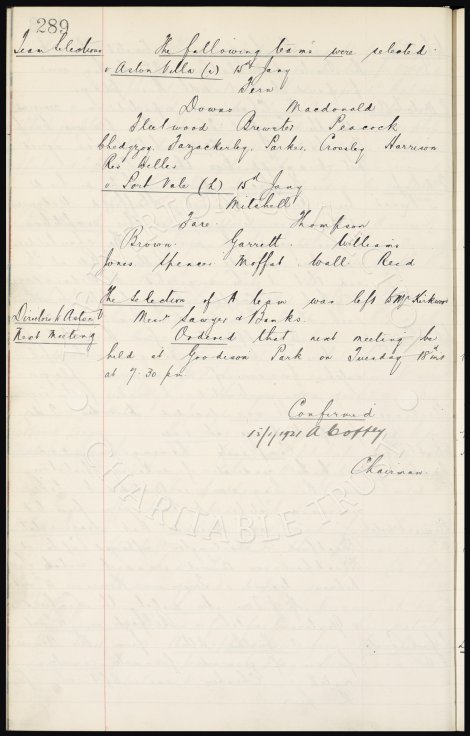 289
Team Selections The following teams were selected.
v Aston Villa (a) 15th Jany
Fern
Downs Macdonald
Fleetwood Brewster Peacock
Chedgzoy, Fazackerley, Parker, Crossley Harrison
Res Belles
v Port Vale (h) 15th Jany
Mitchell
Fare. Thompson
Brown. Garrett. Williams
Jones Spencer Moffat Wall Reid
The selection of A team was left to Mr Kirkwood
Directors to Aston V Messrs Sawyer & Banks.
Next Meeting Ordered that next meeting be
held at Goodison Park on Tuesday 18th ins
at 7.30 pm
Confirmed
18/1/1921 A Coffey
Chairman.
CHARITABLE TRUST